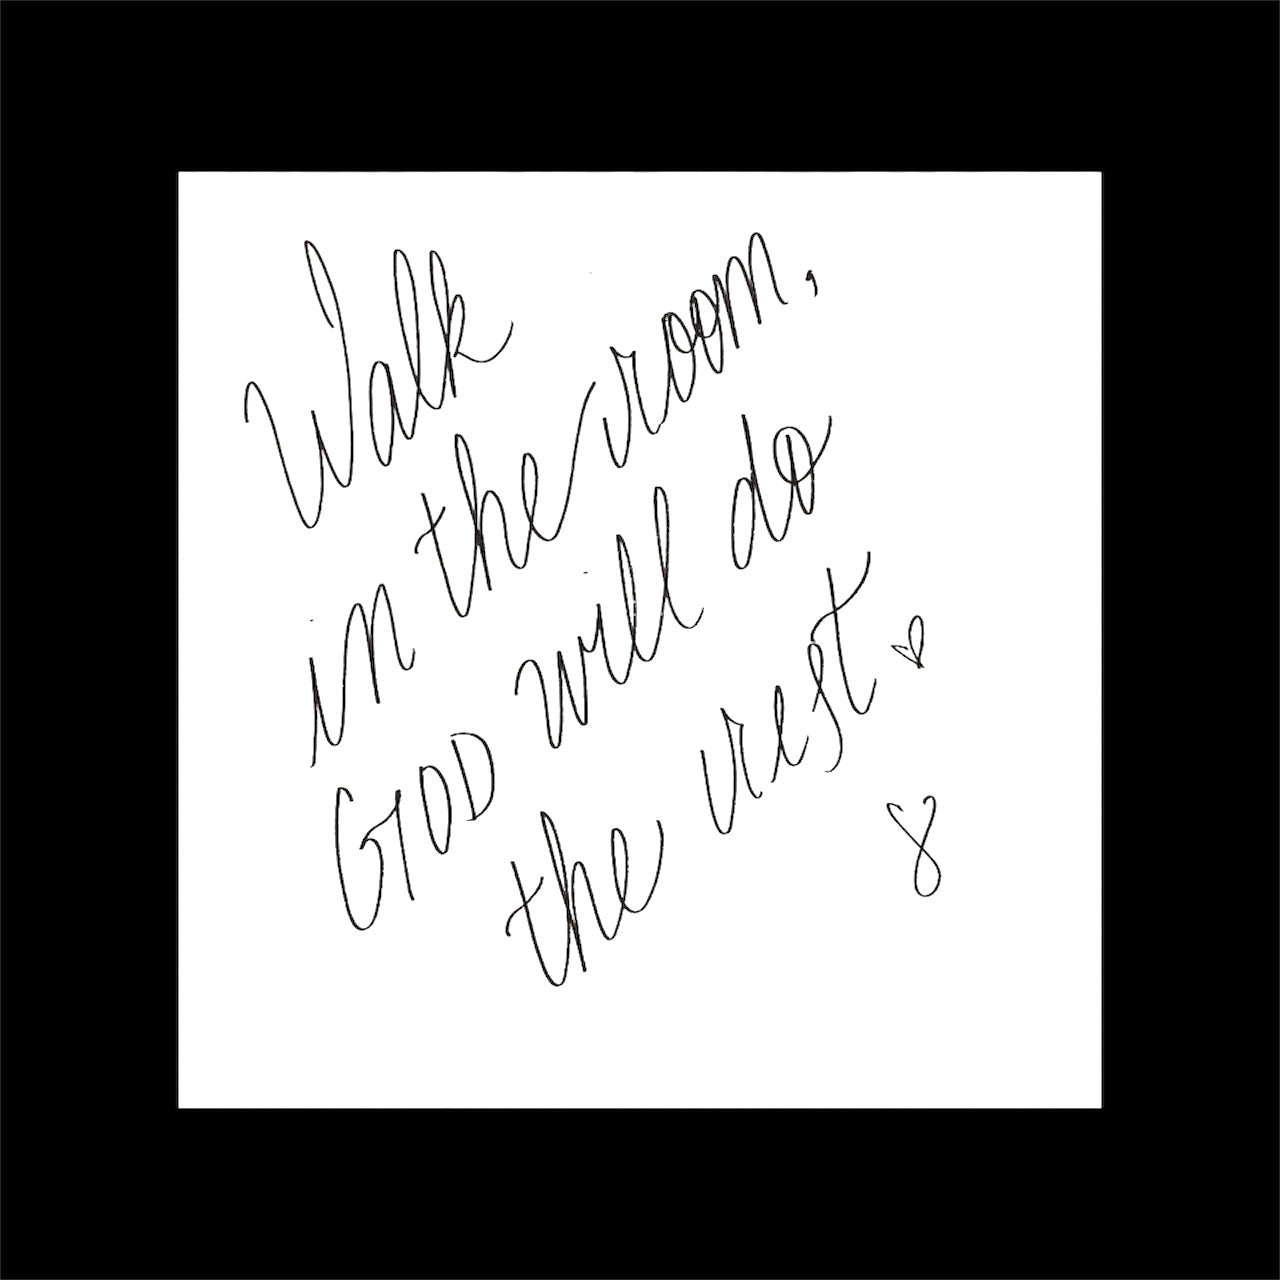 Walk
in the room,
GOD will do
the rest.